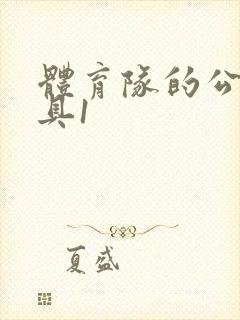 體育隊的公
具1
夏盛